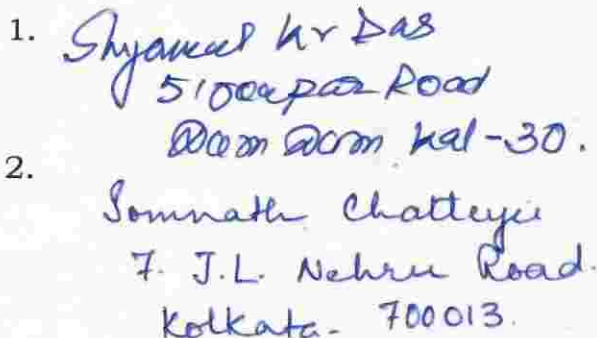 1. Shyamal Kr Das
Road
Dum Dum Kol-30.
2.
Somnath Chatterjee
7. J.L. Nehru Road.
Kolkata- 700013.